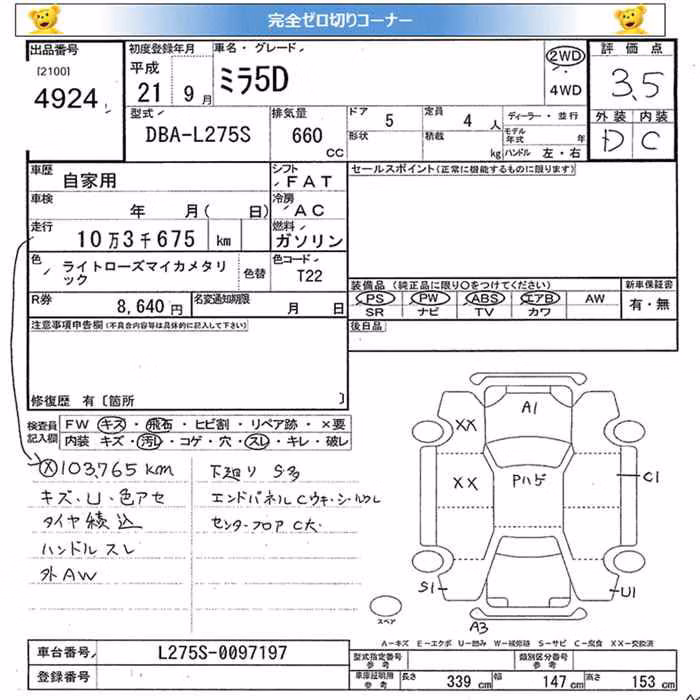 完全ゼロ切りコーナー
出品番号 初度登録年月 車名・グレード 2WD 評価点
[2100] 平成 ミラ5D 3.5
4924 21 9月 4WD
型式 排気量 ドア 5 定員 4人 ディーラー・並行 外装 内装
DBA-L275S 660 CC 形状 積載 kg モデル年式 年 D C
ハンドル 左・右
車歴 自家用 シフト FAT セールスポイント(正常に機能するものに限ります)
車検 年 月( 日) 冷房 AC
走行 10万3千675 km 燃料 ガソリン
色 ライトローズマイカメタリック 色替 色コード T22
装備品 (純正品に限り〇をつけてください) 新車保証書
PS PW ABS エアB AW 有・無
SR ナビ TV カワ
R券 8,640円 名変通知期限 月 日
後日品
注意事項申告欄(不具合内容等は具体的に記入して下さい)
修復歴 有〔箇所 〕
検査員記入欄 FW キズ・飛石・ヒビ割・リペア跡・×要
内装 キズ・汚レ・コゲ・穴・スレ・キレ・破レ
Ⓧ103,765km 下廻り S多
キズ、U、色アセ エンドパネルCウキ・シールワレ
タイヤ積込 センターフロア C大
ハンドルスレ
外AW
A1
XX
XX Pハゲ C1
S1 U1
A3
スペア
A-キズ E-エクボ U-凹み W-補修跡 S-サビ C-腐食 XX-交換済
車台番号 L275S-0097197 型式指定番号 参考 類別区分番号 参考
登録番号 車庫証明用 参考 長さ 339cm 幅 147cm 高さ 153cm